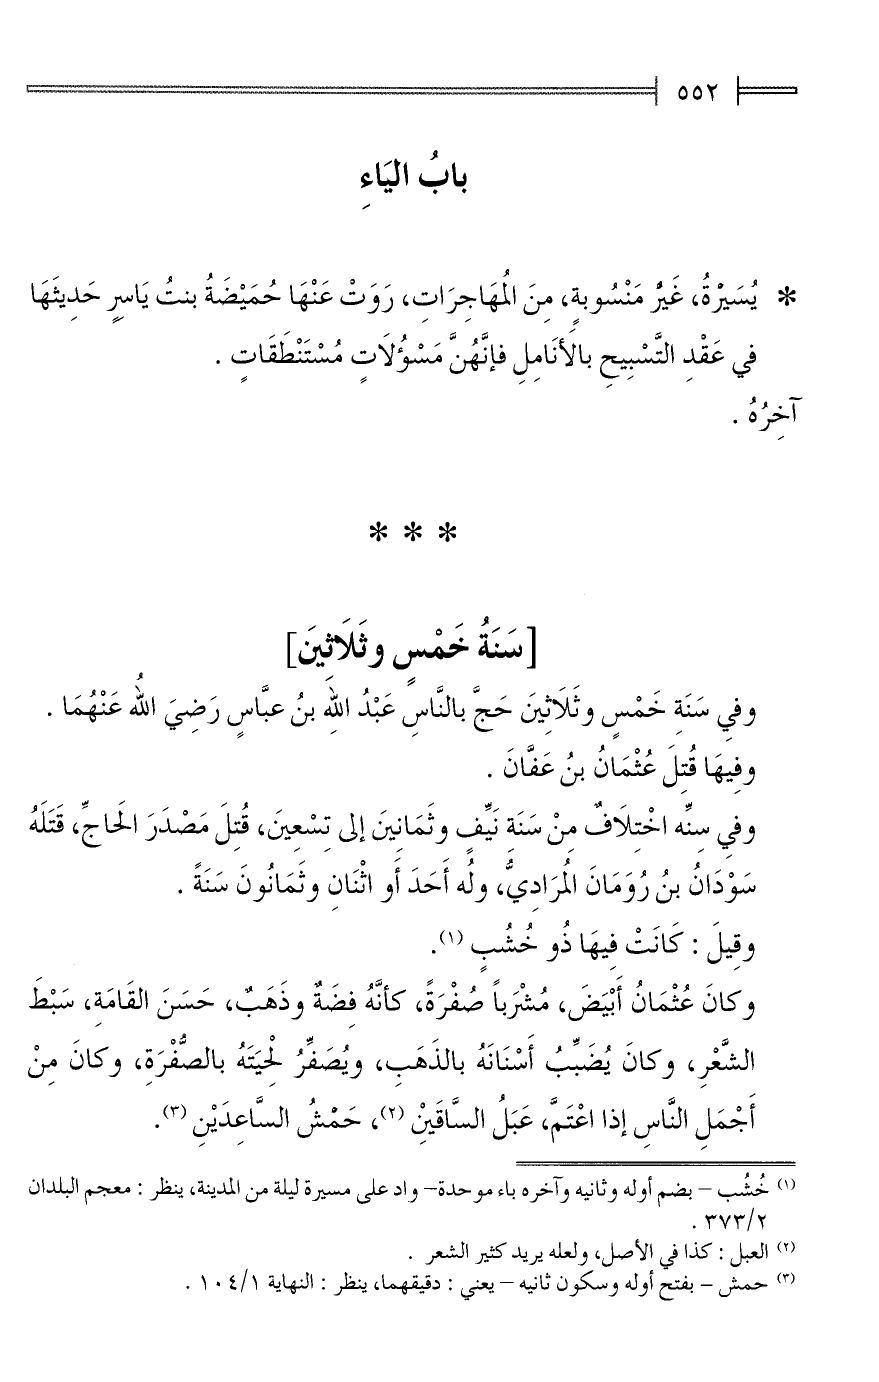 ٥٥٢
بابُ اليَاءِ
* يُسَيْرَةُ، غَيْرُ مَنْسُوبةٍ، مِنَ المُهَاجِرَاتِ، رَوَتْ عَنْهَا حُمَيْضَةُ بنتُ يَاسِرٍ حَدِيثَهَا
في عَقْدِ التَّسْبِيحِ بالأَنَامِلِ فإنَّهُنَّ مَسْؤُلَاتٍ مُسْتَنْطَقَاتٍ .
آخِرُهُ .
* * *
[سَنَةُ خَمْسٍ وثَلَاثِينَ]
وفي سَنَةِ خَمْسٍ وثَلَاثِينَ حَجَّ بالنَّاسِ عَبْدُ اللهِ بنُ عبَّاسٍ رَضِيَ اللهُ عَنْهُمَا .
وفِيهَا قُتِلَ عُثْمَانُ بنُ عَفَّانَ .
وفي سِنِّه اخْتِلَافٌ مِنْ سَنَةِ نَيِّفٍ وثَمَانينَ إلى تِسْعِينَ، قُتِلَ مَصْدَرَ الحَاجِّ، قَتَلَهُ
سَوْدَانُ بنُ رُوَمَانَ المُرَادِيُّ، ولُه أَحَدَ أَو اثْنَانِ وثَمَانُونَ سَنَةً .
وقِيلَ : كَانَتْ فِيهَا ذُو خُشُبٍ (١).
وكانَ عُثْمَانُ أَبْيَضَ، مُشْرَباً صُفْرَةً، كأنَّهُ فِضَةٌ وذَهَبٌ، حَسَنَ القَامَةِ، سَبْطَ
الشَّعْرِ، وكانَ يُضَبِّبُ أَسْنَانَهُ بالذَهَبِ، ويُصَفِّرُ لِحْيَتَهُ بالصُّفْرَةِ، وكانَ مِنْ
أَجْمَلِ النَّاسِ إذا اعْتَمَّ، عَبَلُ السَّاقَيْنِ (٢)، حَمْشُ السَّاعِدَيْنِ (٣).
(١) خُشُب – بضم أوله وثانيه وآخره باء موحدة– واد على مسيرة ليلة من المدينة، ينظر : معجم البلدان
٣٧٣/٢ .
(٢) العبل : كذا في الأصل، ولعله يريد كثير الشعر .
(٣) حمش – بفتح أوله وسكون ثانيه – يعني : دقيقهما، ينظر : النهاية ١٠٤/١ .